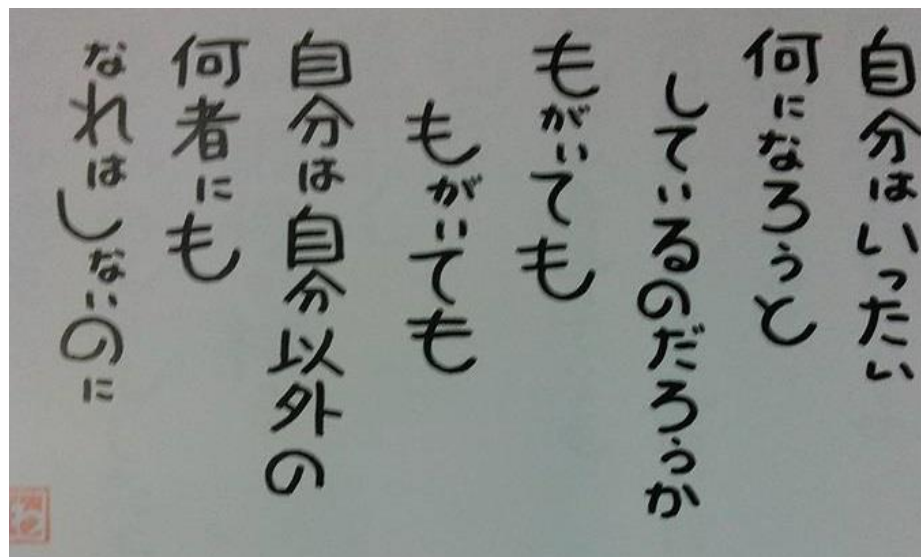 自分はいったい
何になろうと
しているのだろうか
もがいても
もがいても
自分は自分以外の
何者にも
なれはしないのに